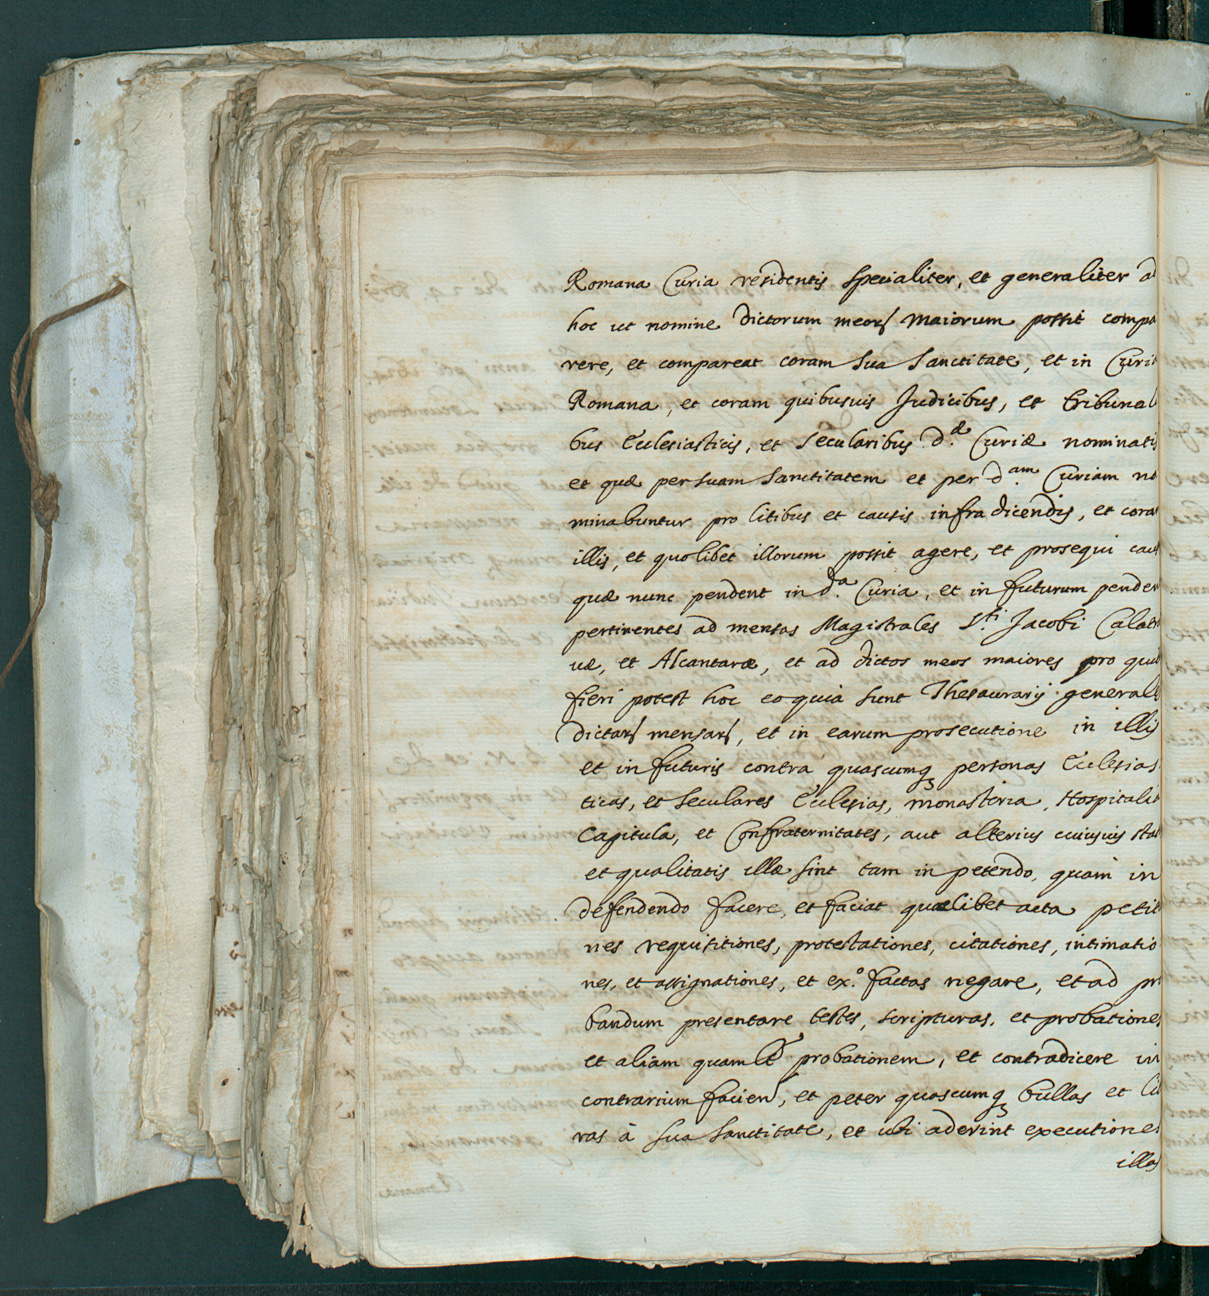 Romana Curia residentis specialiter, et generaliter ad
hoc ut nomine dictorum meorũ maiorum possit compa
rere, et compareat coram sua sanctitate, et in Curia
Romana, et coram quibusuis Judicibus, et tribunal
bus Ecclesiasticis, et secularibus d.æ Curiæ nominatis
et quæ per suam sanctitatem et per d.am Curiam no
minabuntur pro litibus et causis infra dicendis, et cora
illis, et quolibet illorum possit agere, et prosequi cau
quæ nunc pendent in d.a Curia, et in futurum penden
pertinentes ad mensas Magistrales S.ti Jacobi Calatr
uæ, et Alcantaræ, et ad dictos meos maiores pro qu
fieri potest hoc eo quia sunt Thesaurarij general
dictarũ mensarũ, et in earum prosecutione in illis
et in futuris contra quascumq personas Ecclesias
ticas, et seculares Ecclesias, monasteria, Hospitali
Capitula, et Confraternitates, aut alterius cuiusuis sta
et qualitatis illæ sint tam in petendo, quam in
defendendo facere, et faciat quælibet acta petiti
nes requisitiones, protestationes, citationes, intimatio
nes, et assignationes, et ex.o factas negare, et ad pr
bandum presentare testes, scripturas, et probationes
et aliam quamlt probationem, et contradicere in
contrarium facien, et peter quascumq bullas et lit
ras à sua sanctitate, et ubi aderint executiones
illas
Romana